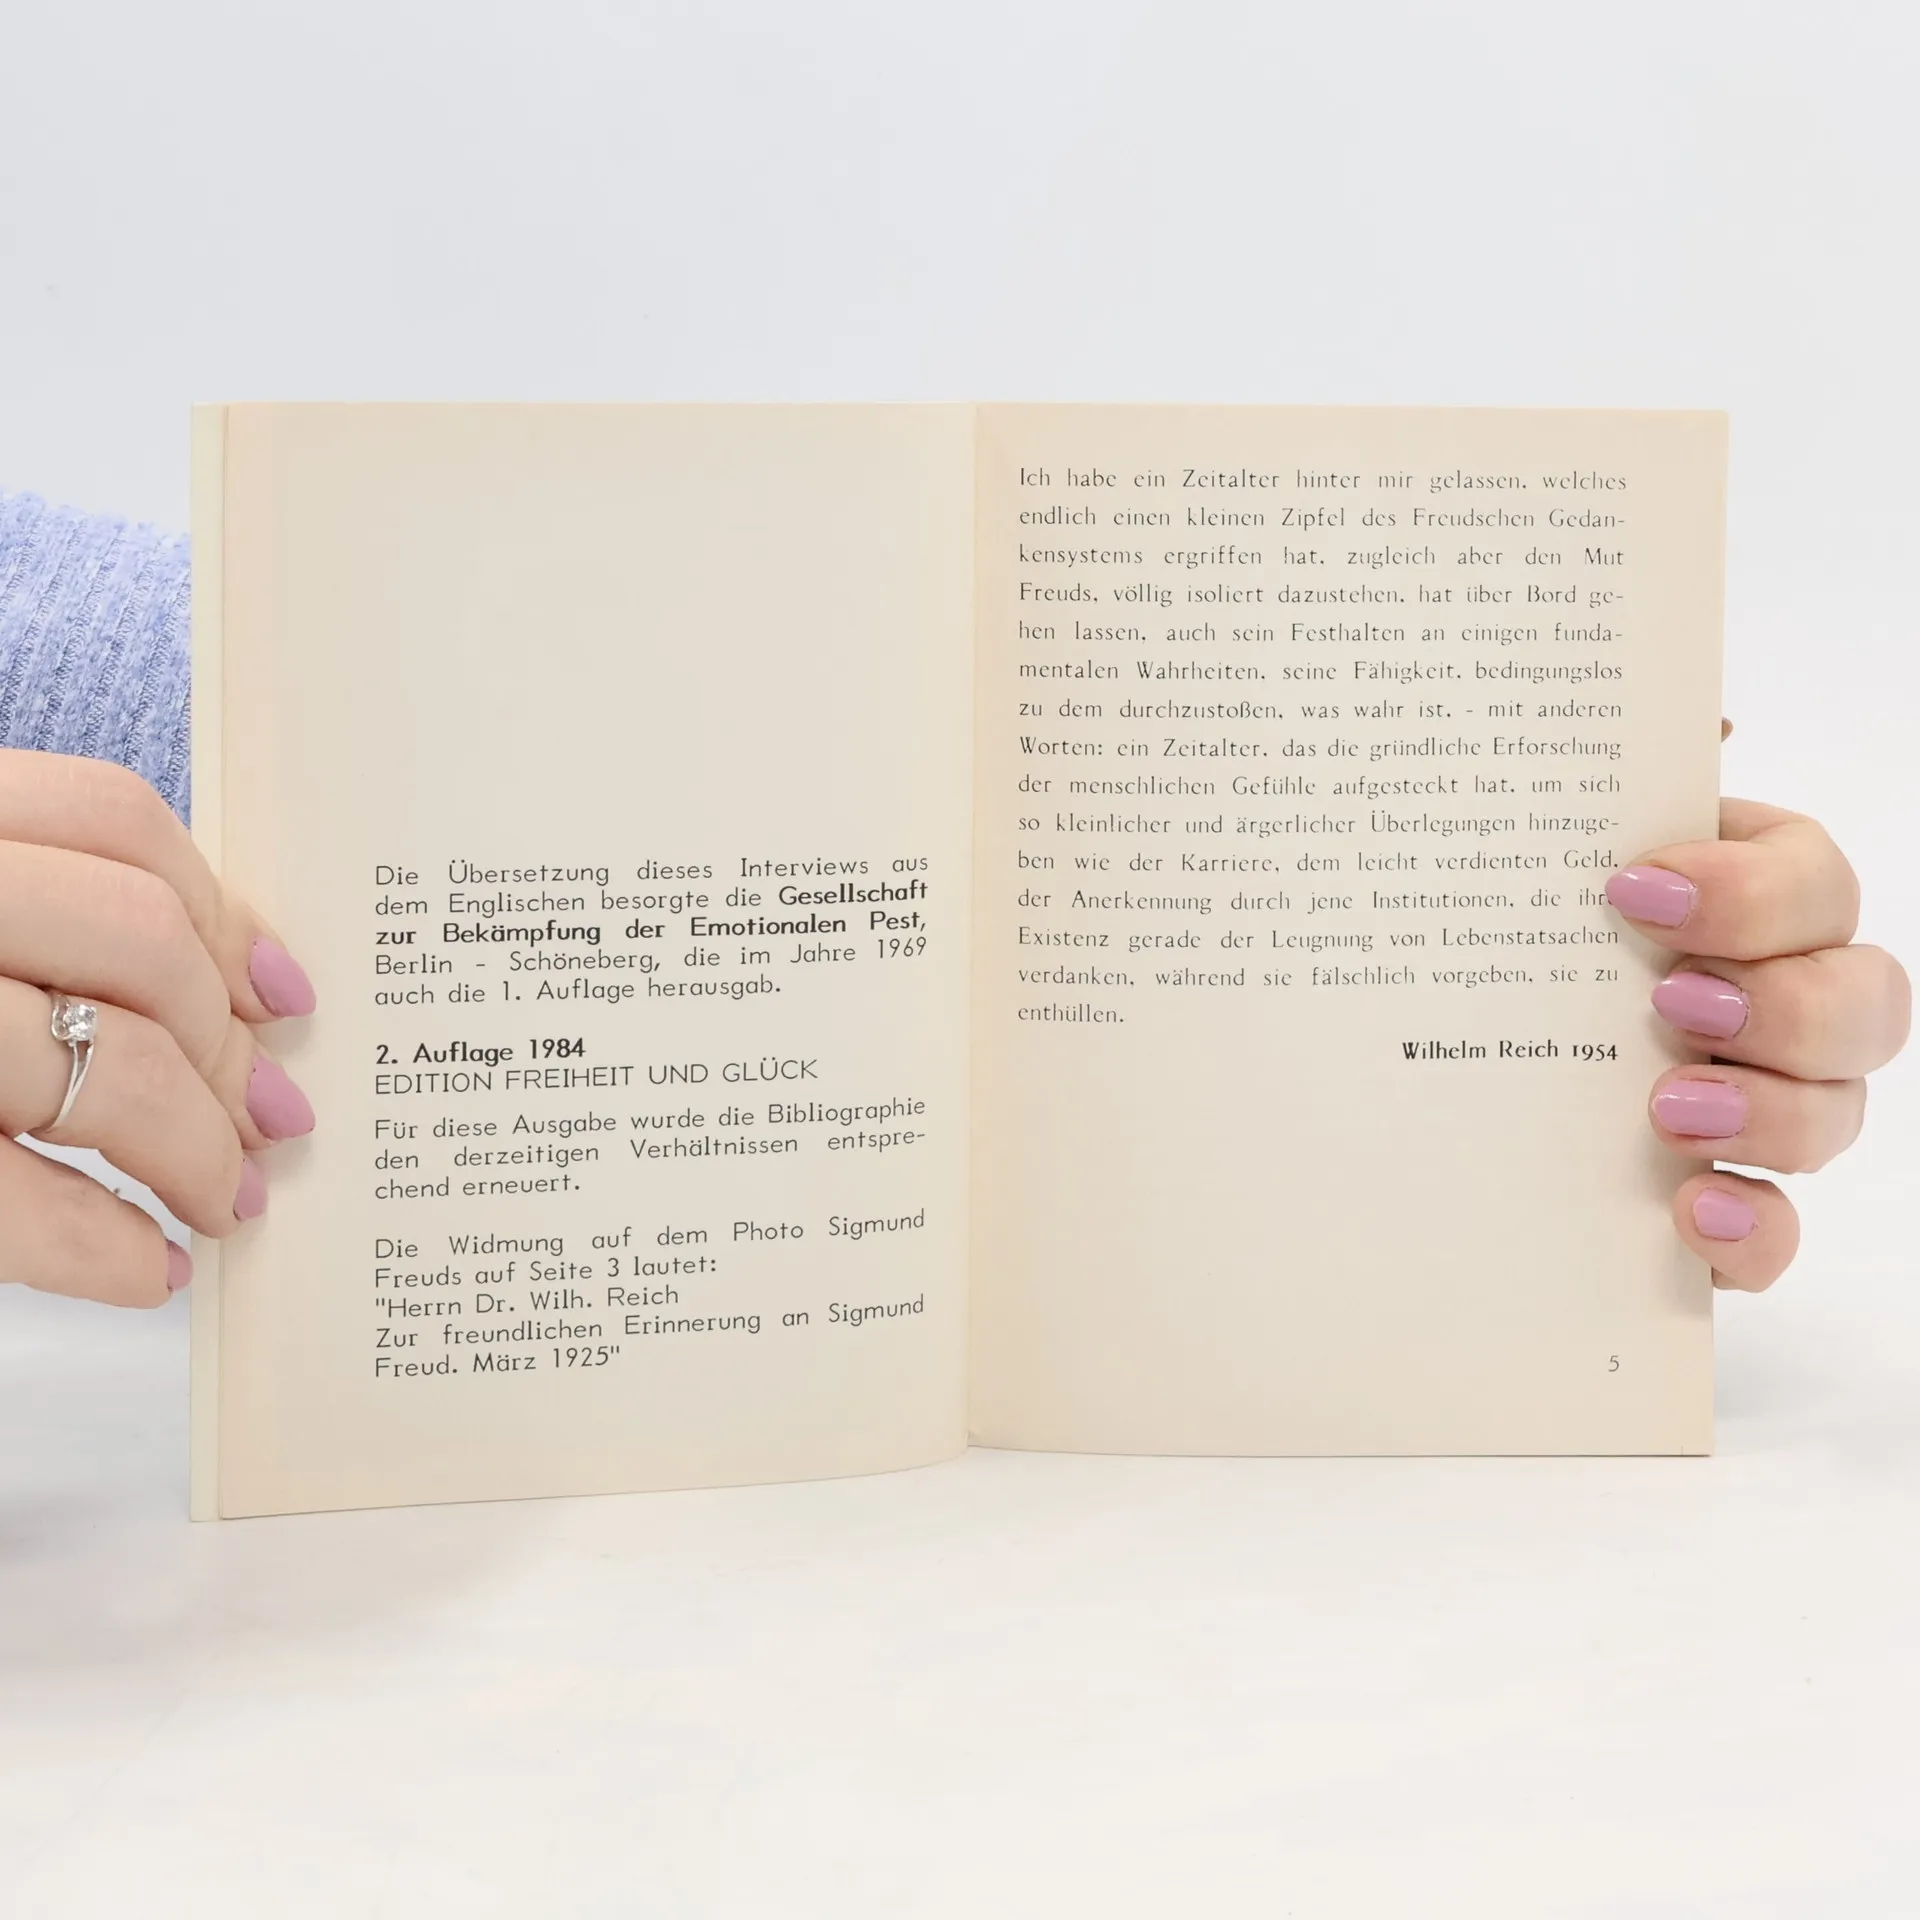 Die Übersetzung dieses Interviews aus
dem Englischen besorgte die Gesellschaft
zur Bekämpfung der Emotionalen Pest,
Berlin - Schöneberg, die im Jahre 1969
auch die 1. Auflage herausgab.
2. Auflage 1984
EDITION FREIHEIT UND GLÜCK
Für diese Ausgabe wurde die Bibliographie
den derzeitigen Verhältnissen entspre-
chend erneuert.
Die Widmung auf dem Photo Sigmund
Freuds auf Seite 3 lautet:
"Herrn Dr. Wilh. Reich
Zur freundlichen Erinnerung an Sigmund
Freud. März 1925"
Ich habe ein Zeitalter hinter mir gelassen, welches
endlich einen kleinen Zipfel des Freudschen Gedan-
kensystems ergriffen hat, zugleich aber den Mut
Freuds, völlig isoliert dazustehen, hat über Bord ge-
hen lassen, auch sein Festhalten an einigen funda-
mentalen Wahrheiten, seine Fähigkeit, bedingungslos
zu dem durchzustoßen, was wahr ist, - mit anderen
Worten: ein Zeitalter, das die gründliche Erforschung
der menschlichen Gefühle aufgesteckt hat, um sich
so kleinlicher und ärgerlicher Überlegungen hinzuge-
ben wie der Karriere, dem leicht verdienten Geld,
der Anerkennung durch jene Institutionen, die ihre
Existenz gerade der Leugnung von Lebenstatsachen
verdanken, während sie fälschlich vorgeben, sie zu
enthüllen.
Wilhelm Reich 1954
5